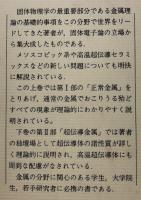 固体物理学の最重要部分である金属理
論の基礎的事項をこの分野で世界をリー
ドしてきた著者が、固体電子論の立場か
ら集大成したものである。
メソスコピック系や高温超伝導セラミ
ックスなどの新しい問題についても明快
に解説されている。
この上巻では第Ⅰ部の「正常金属」を
とりあげ、通常の金属でおこりうる殆ど
すべての現象が理論的にわかりやすく説
明されている。
下巻の第Ⅱ部「超伝導金属」では著者
の独壇場として超伝導体の諸性質が詳し
く理論的に説明され、高温超伝導体にも
周到な配慮がなされている。
金属の分野に関心のある学生、大学院
生、若手研究者に必携の書である。